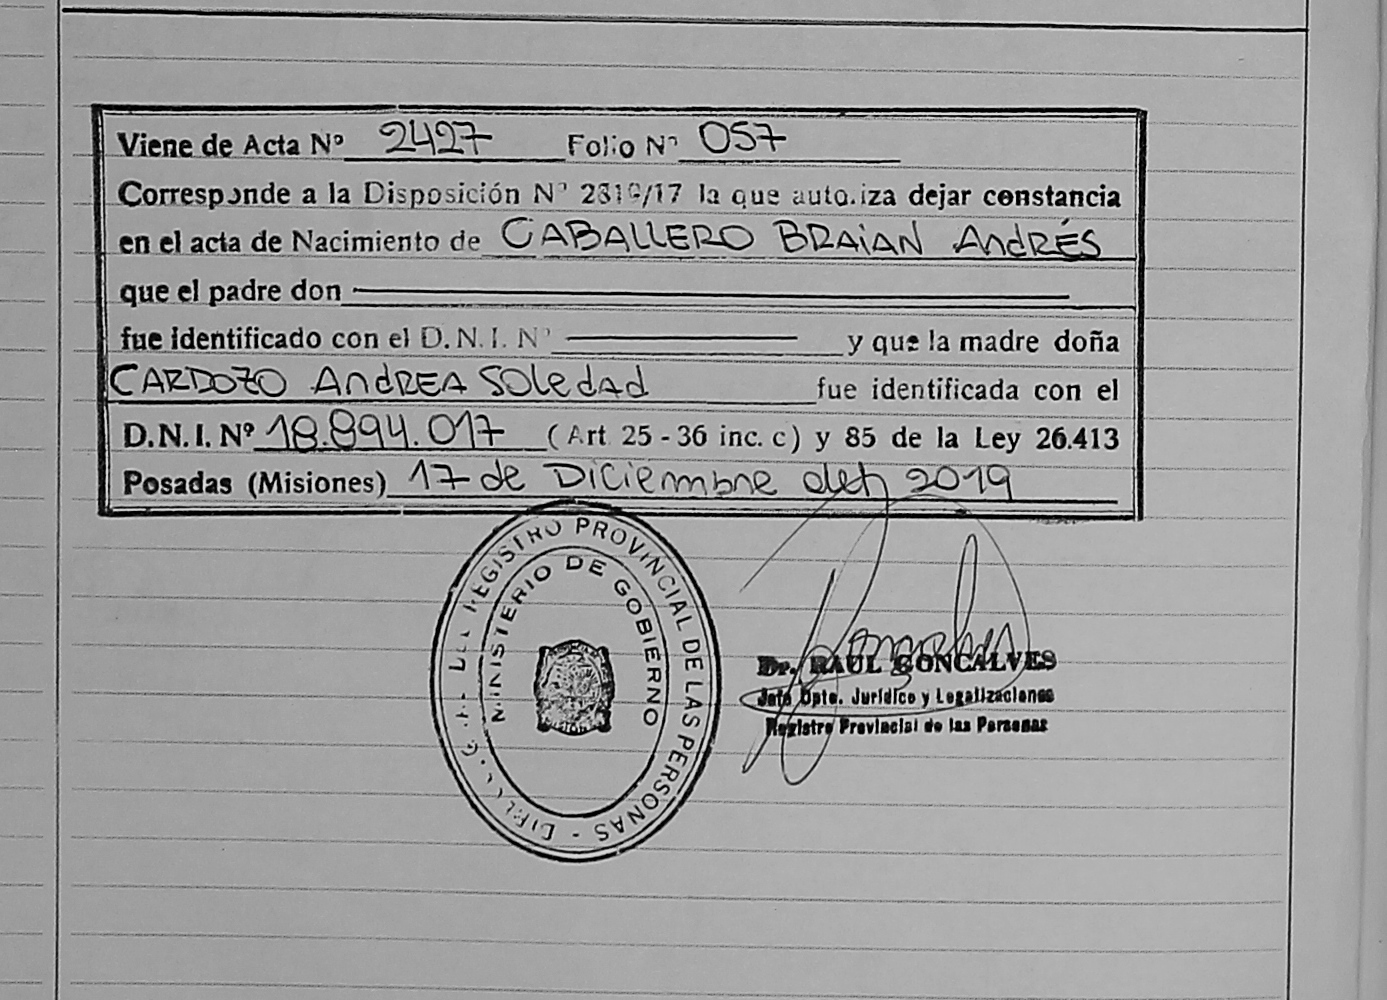 Viene de Acta Nº 2427 Folio Nº 057
Corresponde a la Disposición Nº /17 la que autoriza dejar constancia
en el acta de Nacimiento de CABALLERO BRAIAN ANDRÉS
que el padre don
fue identificado con el D.N.I. Nº y que la madre doña
CARDOZO ANDREA SOLEDAD fue identificada con el
D.N.I. Nº 18.894.017 (Art 25 - 36 inc. c) y 85 de la Ley 26.413
Posadas (Misiones) 17 de Diciembre del 2019
REGISTRO PROVINCIAL DE LAS PERSONAS -
MINISTERIO DE GOBIERNO
Dr. RAUL GONCALVES
Jefe Dpto. Jurídico y Legalizaciones
Registro Provincial de las Personas